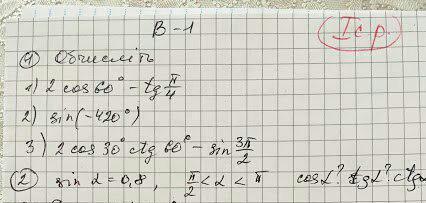 В-1
I с.р.
① Обчисліть
1) 2 cos 60° - tg π/4
2) sin(-420°)
3) 2 cos 30° ctg 60° - sin 3π/2
② sin α = 0,8, π/2 < α < π cos α? tg α? ctg α